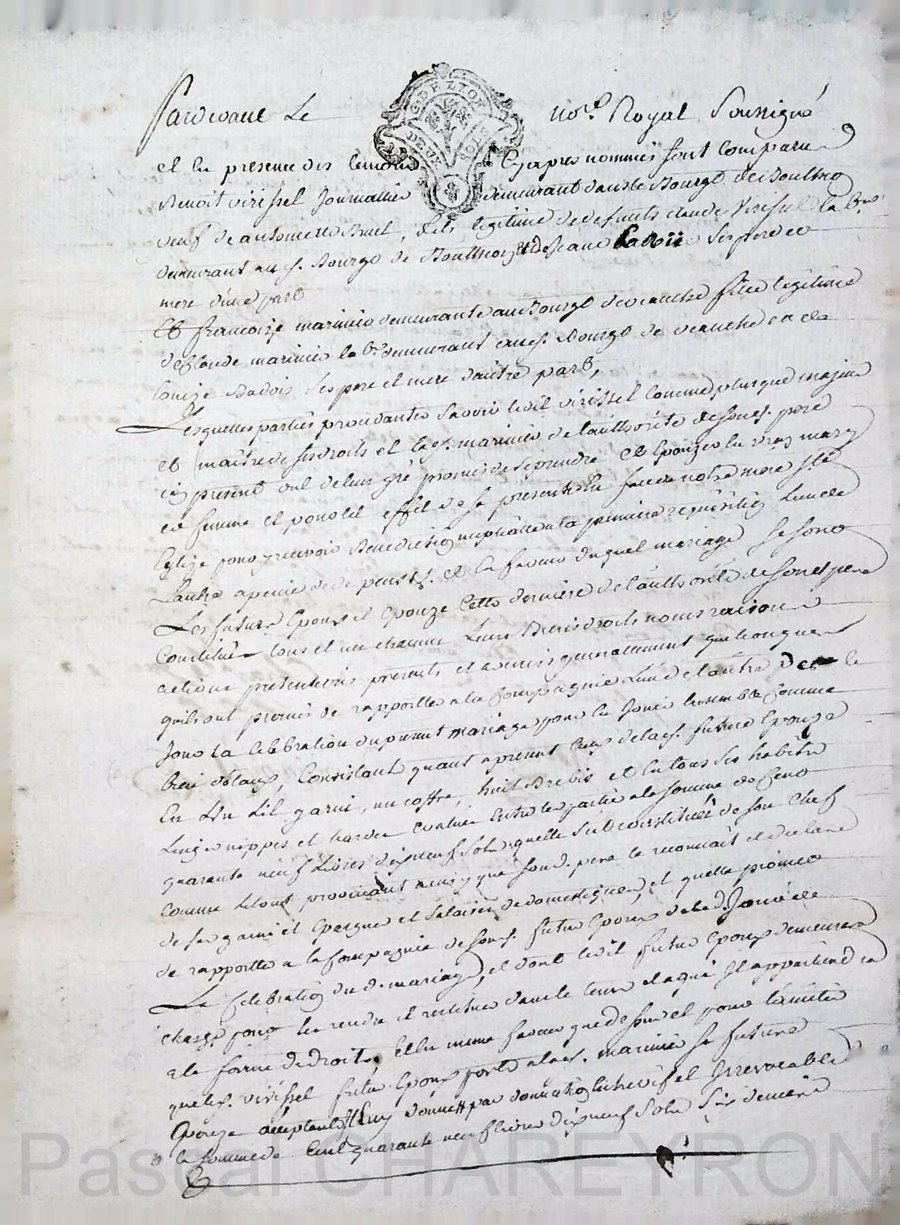 Pardevant Le no.re Royal Soussigné
G. DE LYON
DEUX SOLS
et en presence des temoins cyapres nommés sont comparu
Benoit virissel Journallier demeurant dans le Bourg de Boutheo
veuf de antoinette , fils legitime de defunts claude virissel la.br
demeurant aud. Bourg de Boutheo et de Jeanne ses pere et
mere d'une part
Et francoize marinier demeurante au Bourg de veauche fille legitime
de Claude marinier la.br demeurant aud. Bourg de veauche et de
louize Badois ses pere et mere d'autre part,
Lesquelles parties procedantes savoir led. virissel comme plus que majeur
et maitre de ses droits et lad. marinier de l'authorité de son d. pere
cy present ont de leur gré promis de se prendre et Epouzer en vray mary
et femme et pour cet effet de se presenter en face de notre mere Ste
Eglize pour y recevoir Benediction nuptialle a la premiere requisition l'un de
L'autre a peine de depens. et en faveur duquel mariage se sont
Les futurs Epoux et Epouze cette derniere de l'authorité de son d. pere
Constitués tous et un chacun leurs Biens droits noms raisons
actions pretentions presents et avenir generallement quelconques
qu'ils ont promis de rapporter a la Compagnie l'un de l'autre le
Jour la celebration du present mariage pour en Jouir ensemble comme
Biens dotaux, Consistant quant a present ceux de lad. future Epouze
En un lit garni, un coffre, huit Brebis et en tous ses habits
linges nippes et hardes evalué entre les parties a la somme de Cent
quarante neuf livres dix neuf sols quelle se constitue de son Chef
comme le tout provenant ainsy que son d. pere le reconnait et declare
de ses gains et Epargne et salaires de domestique, et quelle promet
de rapporter a la Compagnie de son d. futur Epoux de la d. Journée de
La Celebration du d. mariage, et dont led. futur Epoux demeurera
chargé pour les rendre et restituer dans le temps et a qui Il appartiendra
a la forme de droit, et en meme faveur que dessus et pour l'amitié
que led. virissel futur Epoux porte a lad. marinier sa future
Epouze acceptante Il luy donne par donnation entre vif et Irrevocable
la somme de Cent quarante neuf livres dix neuf sols six deniers
Pascal CHAREYRON